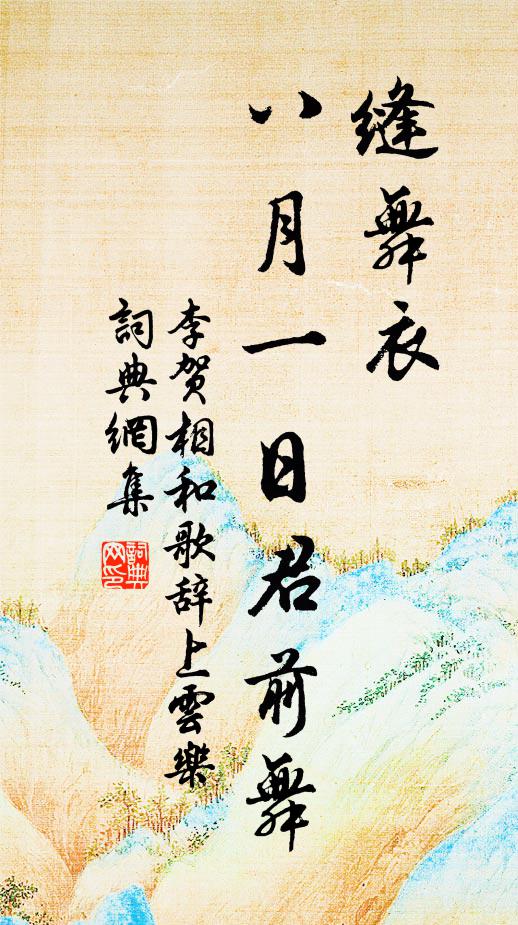 縫舞衣
八月一日君前舞
李贺相和歌辞上雲樂
詞典網集
詞典
网印